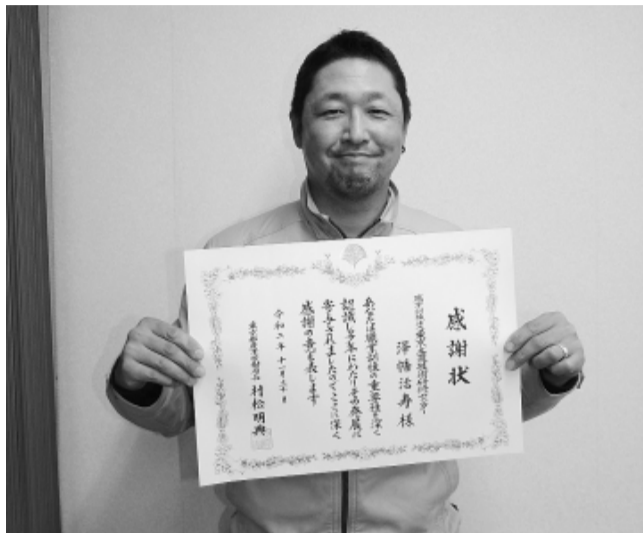 感謝状
澤幡浩寿様
あなたは職業訓練の重要性を深く
認識し多年にわたりその発展に
寄与されましたのでここに深く
感謝の意を表します
令和二年十一月二十日
村松明典